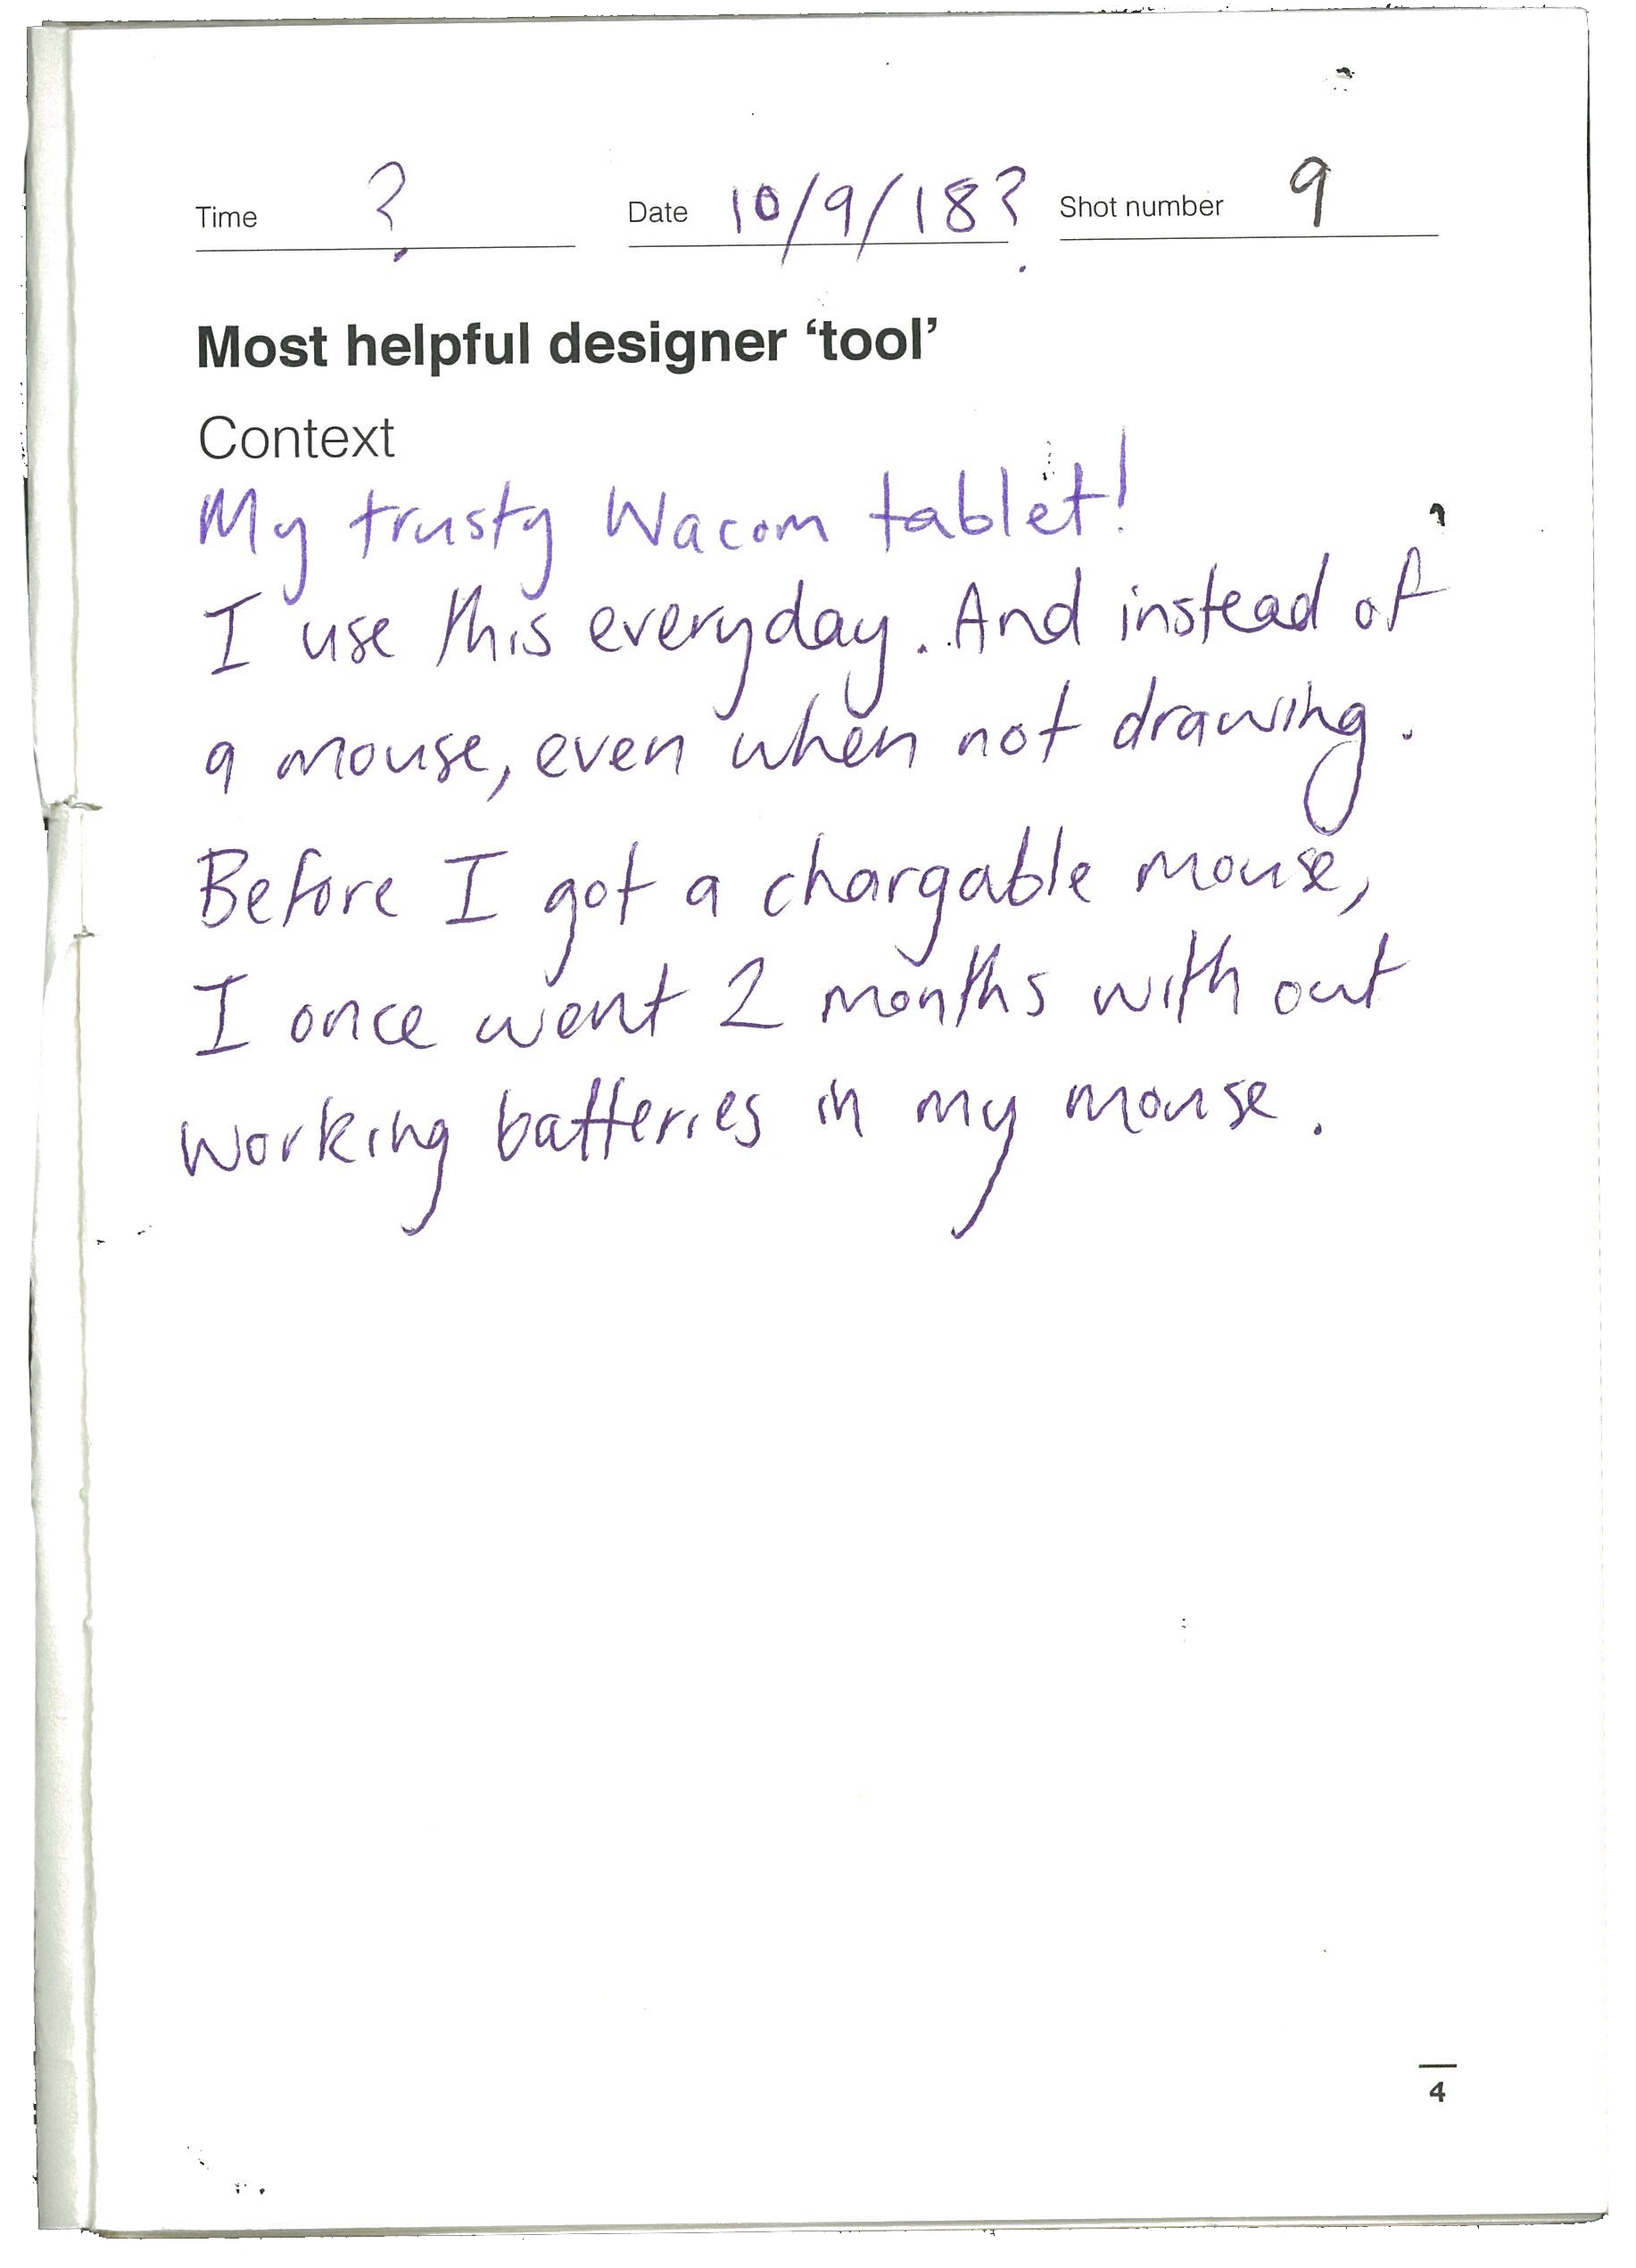 Time ? Date 10/9/18? Shot number 9
Most helpful designer ‘tool’
Context
My trusty Wacom tablet!
I use this everyday. And instead of
a mouse, even when not drawing.
Before I got a chargable mouse,
I once went 2 months with out
working batteries in my mouse.
4